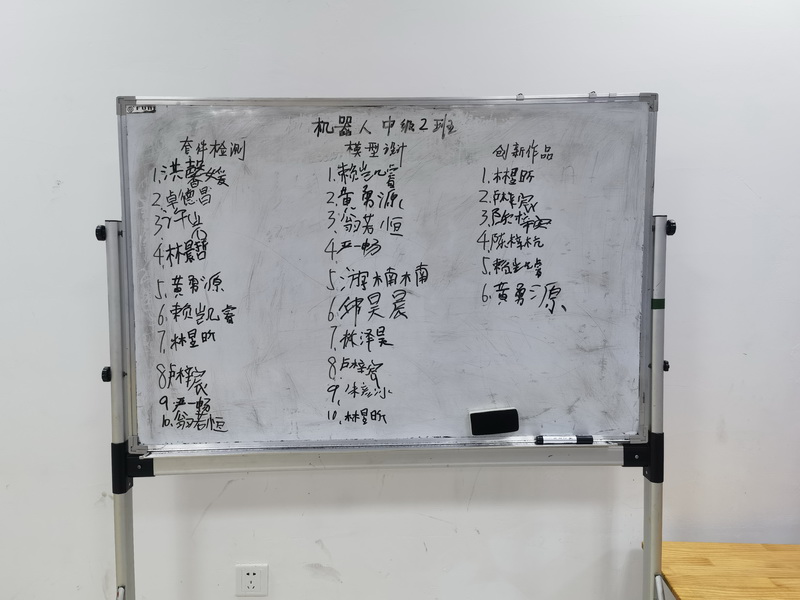 机器人中级2班
套件检测
1.洪馨媛
2.卓德昌
3.许
4.林景哲
5.黄勇源
6.赖凯睿
7.林昱昕
8.卢梓宸
9.严一畅
10.翁若恒
模型设计
1.赖凯睿
2.黄勇源
3.翁若恒
4.严一畅
5.游楠楠
6.邱昊晨
7.林泽昊
8.卢梓宸
9.朱彦冰
10.林昱昕
创新作品
1.林昱昕
2.卢梓宸
3.
4.陈梓杭
5.赖凯睿
6.黄勇源